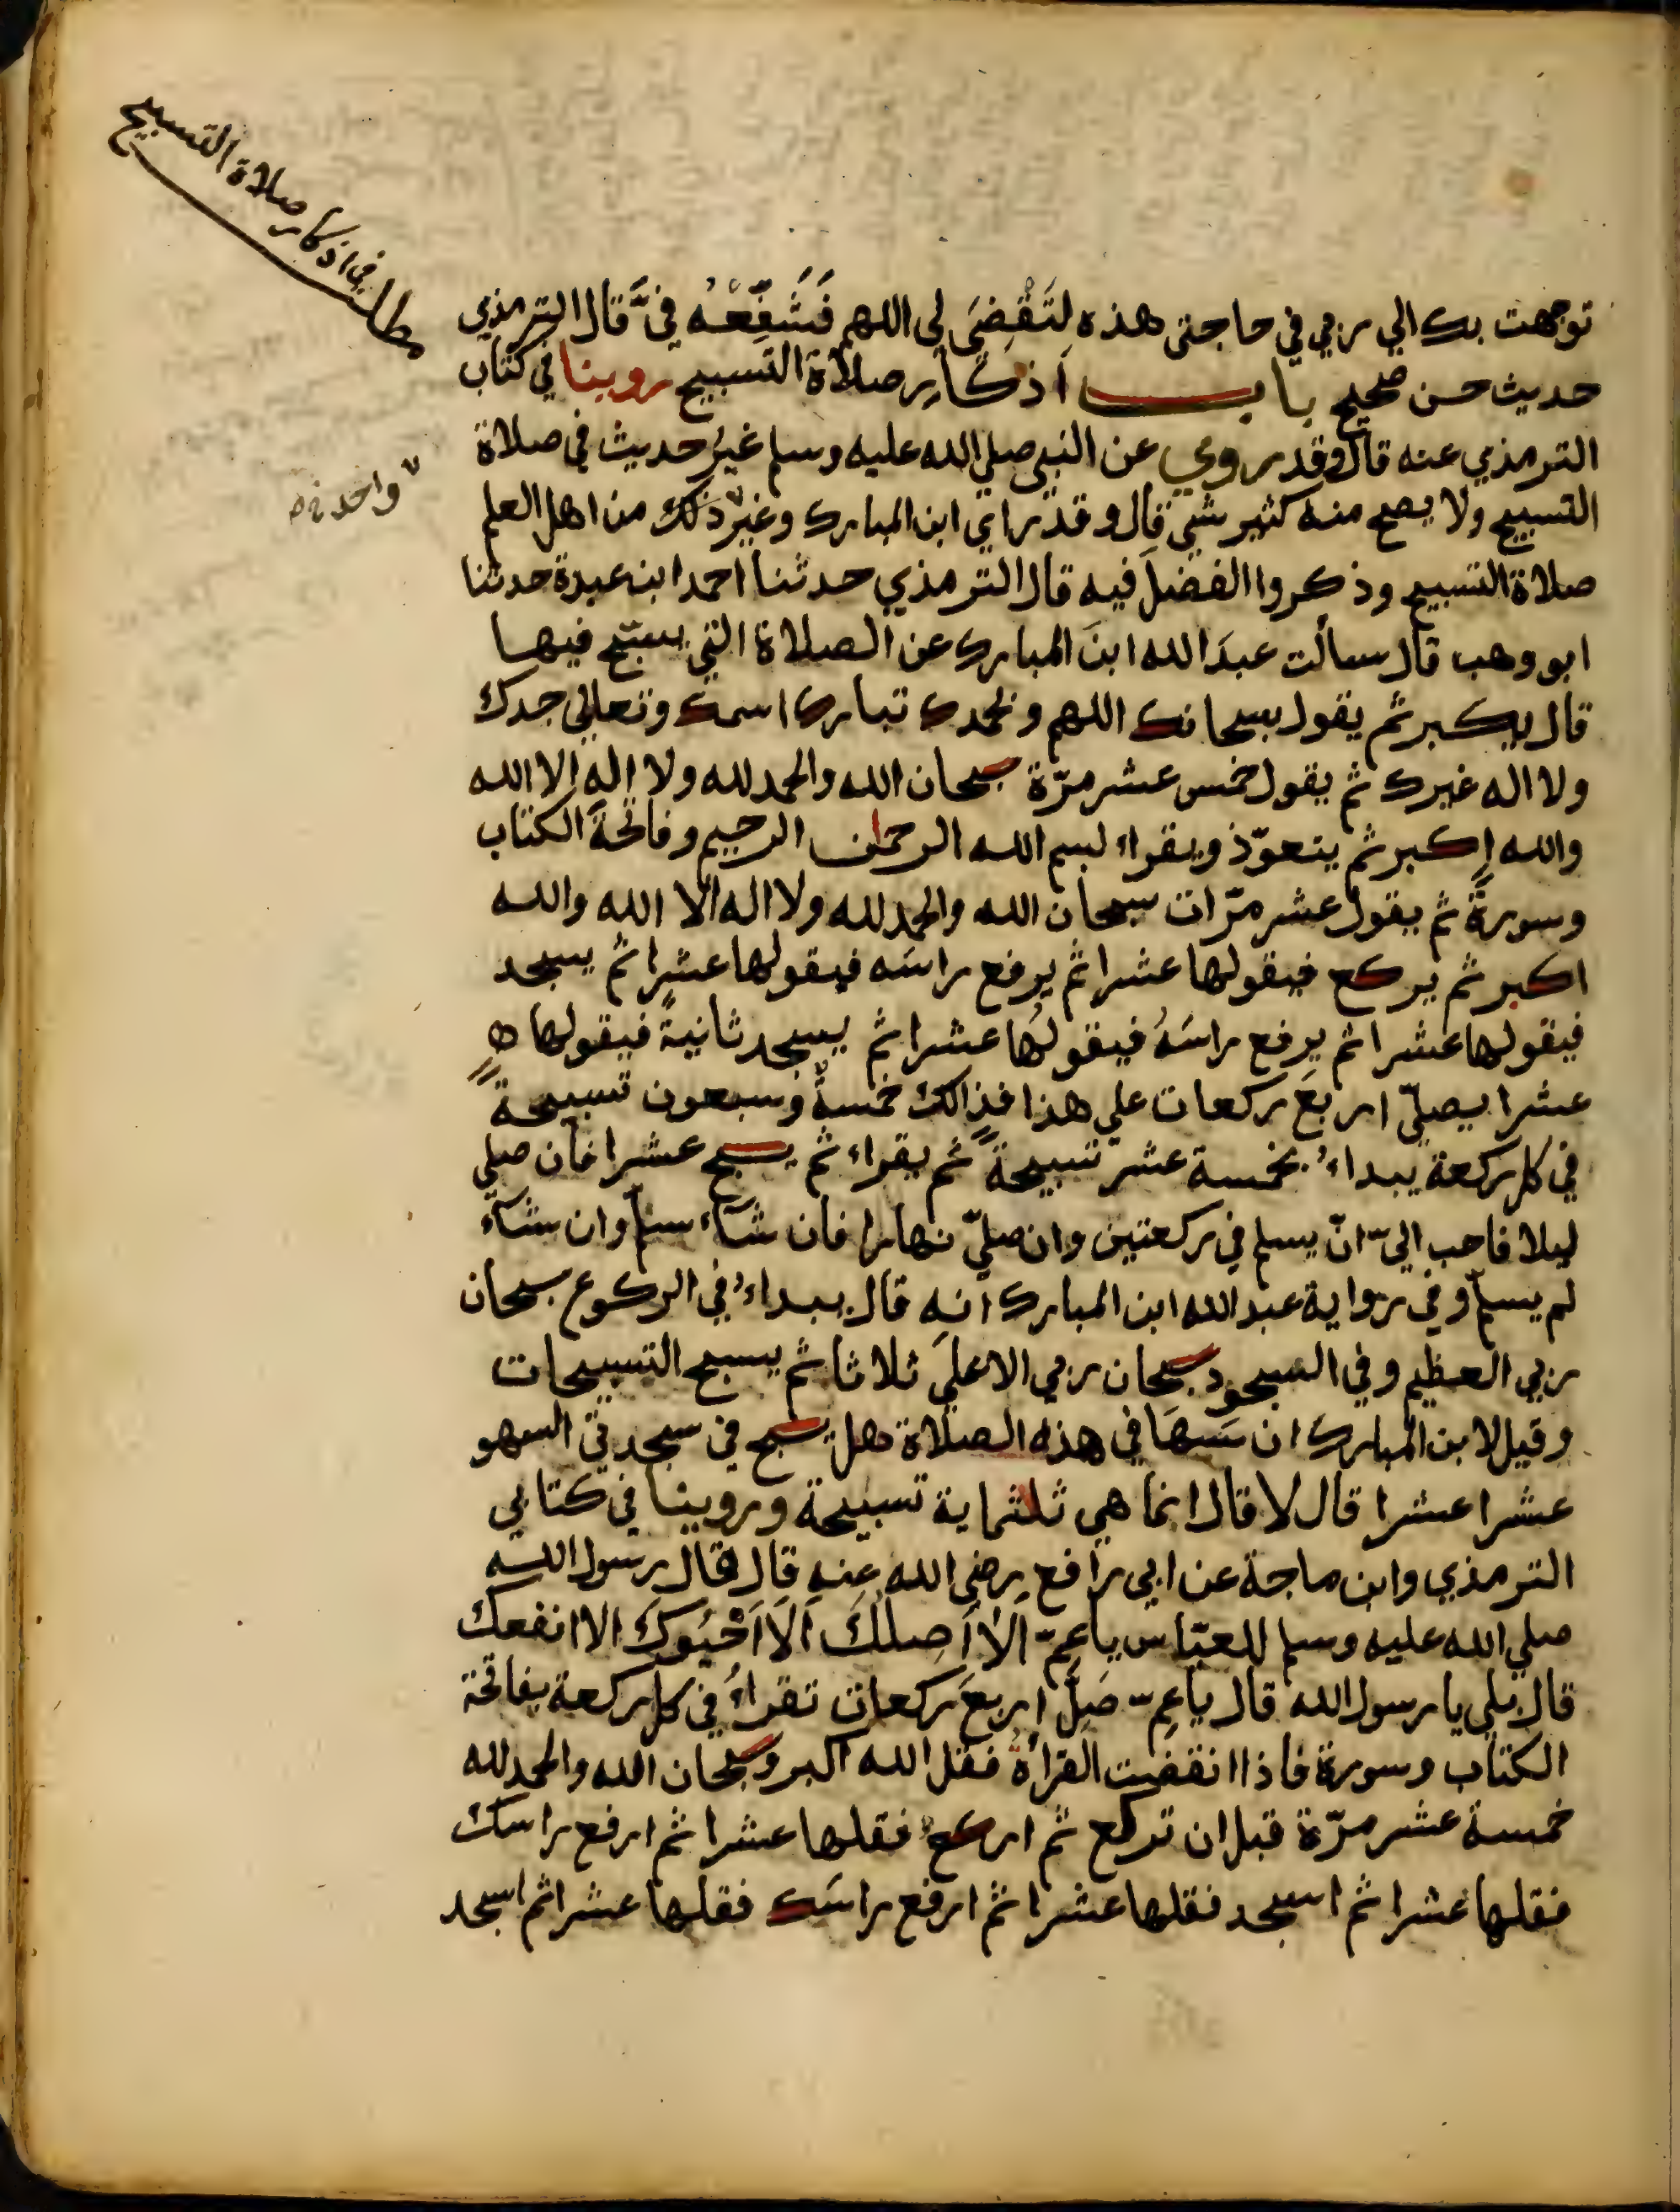 مطلب في اذكار صلاة التسبيح
توجهت بك الي ربي في حاجتي هذه لِتَقْضِيَ لي اللهم فَشَفِّعْهُ فيَّ قال الترمذي
حديث حسن صحيح باب اذكار صلاة التسبيح روينا في كتاب
الترمذي عنه قال وقد روي عن النبي صلي الله عليه وسلم غيرُ حديث في صلاة
التسبيح ولا يصح منه كثير شي قال وقد راي ابن المبارك وغير ذلك من اهل العلم
واحد
صلاة التسبيح وذكروا الفضلَ فيه قال الترمذي حدثنا احمد ابن عبدة حدثنا
ابو وهب قال سالت عبدَ الله ابنَ المبارك عن الصلاة التي يسبّح فيها
قال يكبر ثم يقول سبحانك اللهم وبحمدك تبارك اسمك وتعالي جدك
ولا اله غيرك ثم يقول خمس عشر مرّة سبحان الله والحمد لله ولا اله الا الله
والله اكبر ثم يتعوّذ ويقراء بسم الله الرحمان الرحيم وفاتحةَ الكتاب
وسورةً ثم يقول عشر مرّات سبحان الله والحمد لله ولا اله الا الله والله
اكبر ثم يركع فيقولها عشرا ثم يرفع راسَه فيقولها عشرا ثم يسجد
فيقولها عشرا ثم يرفع راسَهُ فيقولُها عشرا ثم يسجد ثانيةً فيقولها
عشرا يصليّ اربعَ ركعات علي هذا فذالك خمسةٌ وسبعون تسبيحةً
في كل ركعة يبداءُ بخمسة عشر تسبيحةً ثم يقراء ثم يسبح عشرا فان صلي
ليلا فاحب اليّ انّ يسلم في ركعتين وان صليّ نهارا فان شآء سلم وان شآء
لم يسلم وفي رواية عبد الله ابن المبارك انه قال يبداءُ في الركوع سبحان
ربي العظيم وفي السجود سبحان ربي الاعلي ثلاثا ثم يسبح التسبيحات
وقيل لابن المبارك ان سَهَا في هذه الصلاة هل يسبح في سجدتي السهو
عشرا عشرا قال لا قال انما هي ثلثماية تسبيحة وروينا في كتابي
الترمذي وابن ماجة عن ابي رافع رضي الله عنه قال قال رسول الله
صلي الله عليه وسلم للعبّاس يا عمِّ اَلا اَصِلُكَ اَلا اَحْبُوكَ الا انفعك
قال بلي يا رسول الله قال يا عمِّ صَلِّ اربعَ ركعات تقراءُ في كل ركعة بفاتحة
الكتاب وسورة فاذا انقضت القراةُ فقل الله اكبر وسبحان الله والحمد لله
خمسة عشر مرّة قبل ان تركع ثم اركع فقلها عشرا ثم ارفع راسك
فقلها عشرا ثم اسجد فقلها عشرا ثم ارفع راسَك فقلها عشرا ثم اسجد